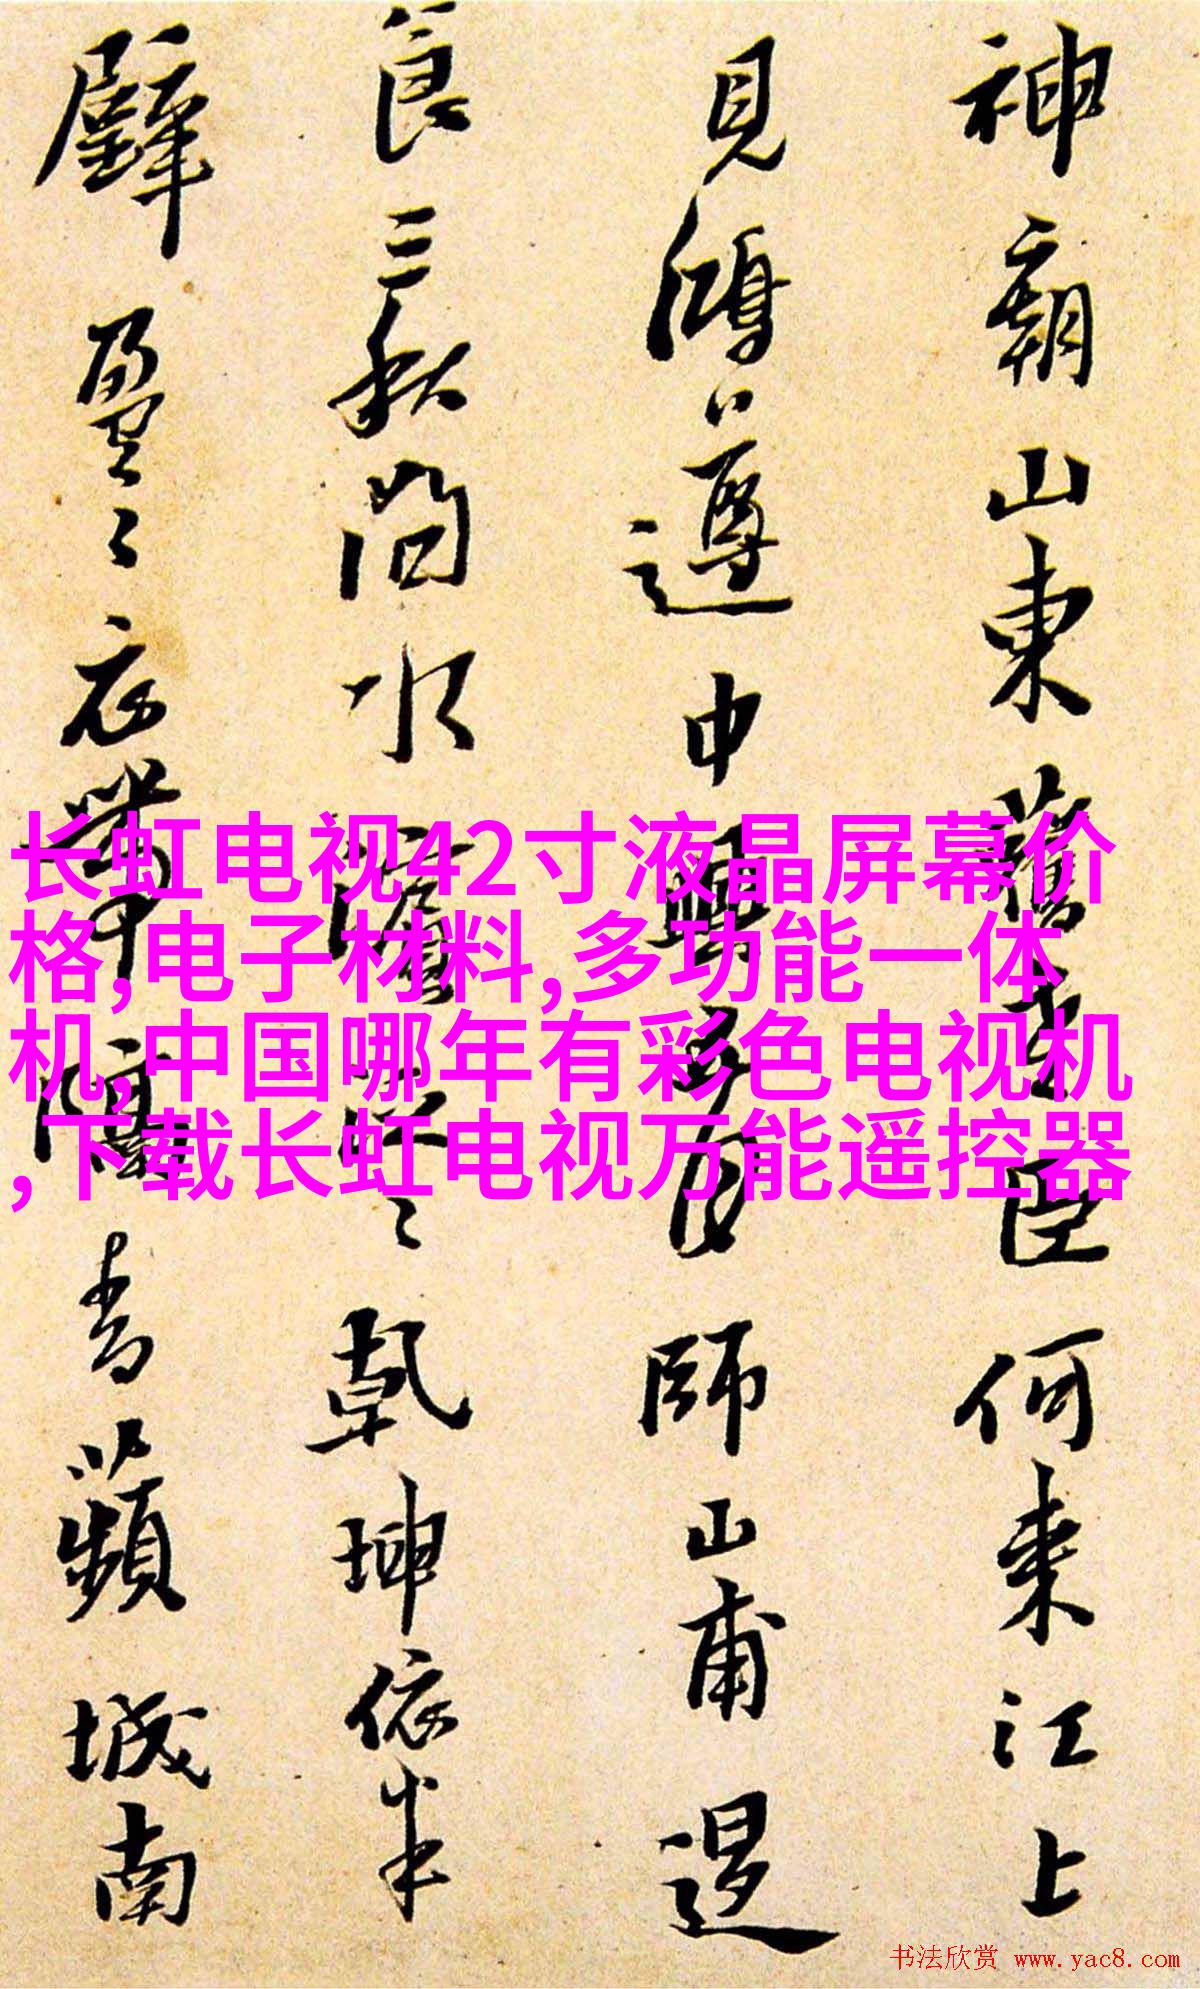 神廟山東舊臣何來江上
見鴻遵中興師山甫
三秋間水澹乾坤依半
壁盈衣帶隔青蘋城南
长虹电视42寸液晶屏幕价
格,电子材料,多功能一体
机,中国哪年有彩色电视机
,下载长虹电视万能遥控器
书法欣赏 www.yac8.com